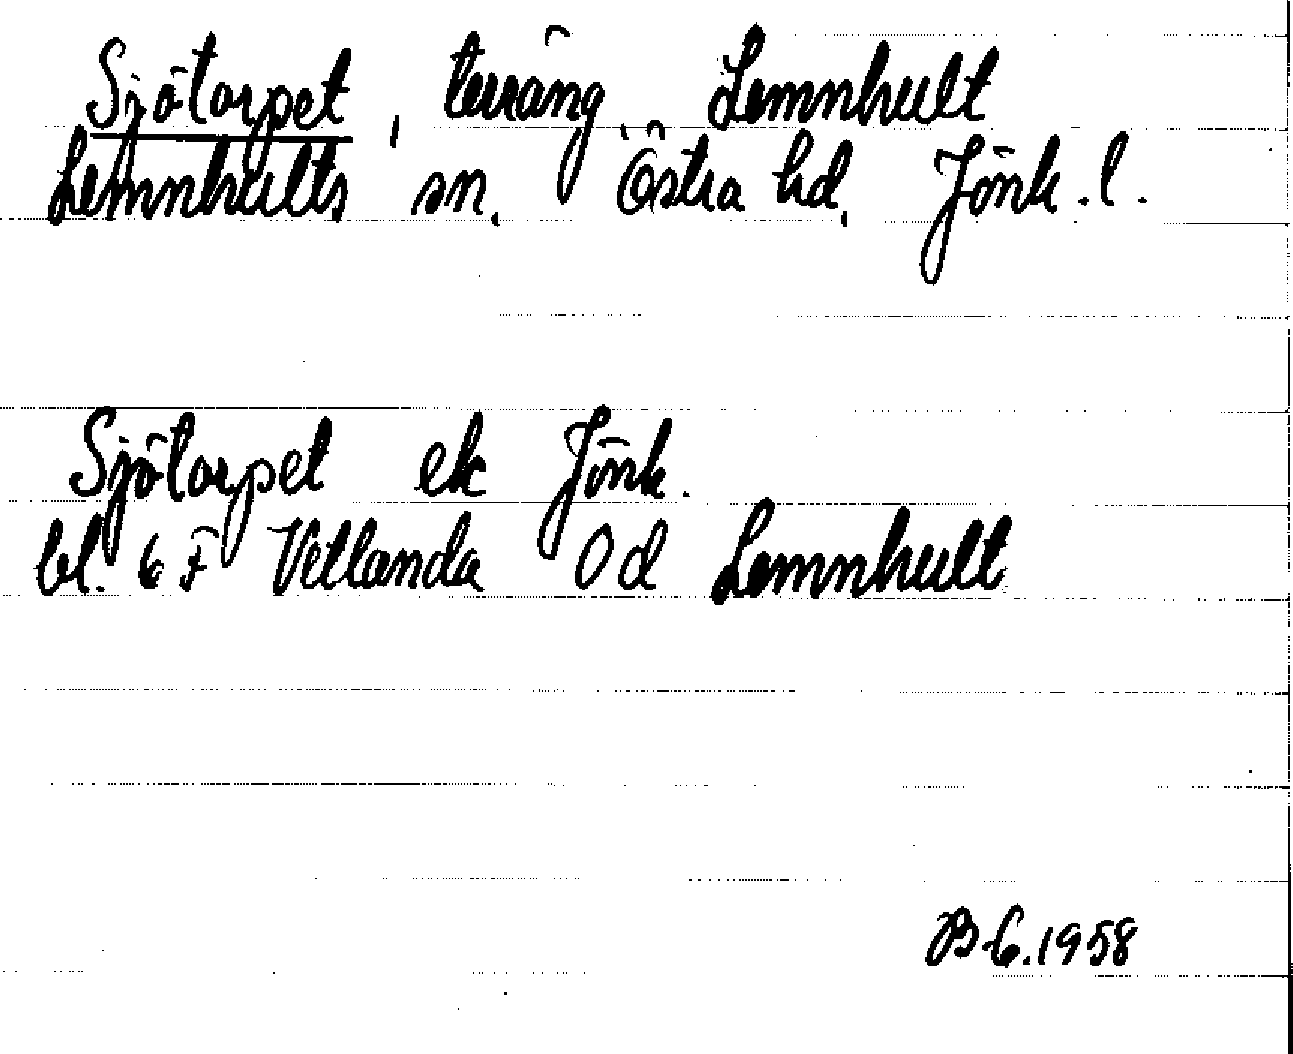 Sjötorpet, terräng, Lemnhult
Lemnhults sn. Östra hd. Jönk.l.
Sjötorpet ek Jönk.
bl. 6 F Vetlanda 0 d Lemnhult
B-G.1958